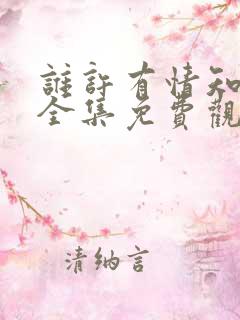 誰許有情知
全集免費觀
清纳言